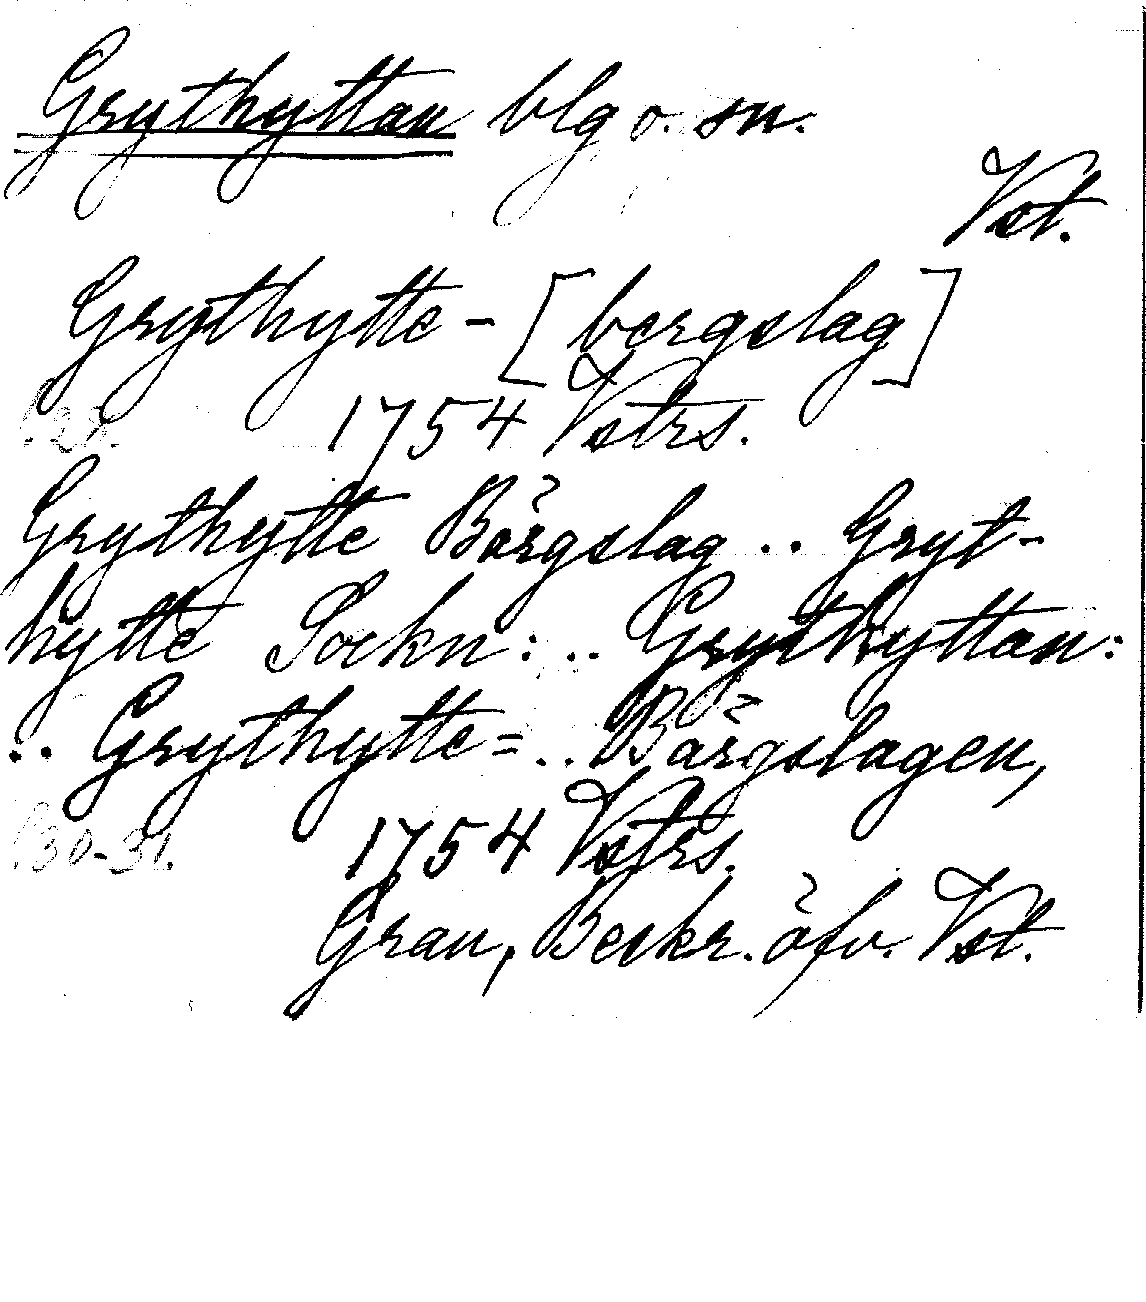 Grythyttan blg o. sn.
Vst.
Grythytte-[bergslag]
1754 Vstrs.
Grythytte Bärgslag .. Gryt-
hytte Sockn: .. Grythyttan:
.. Grythytte= .. Bärgslagen,
s. 30-31. 1754 Vstrs.
Grau, Beskr. öfv. Vst.